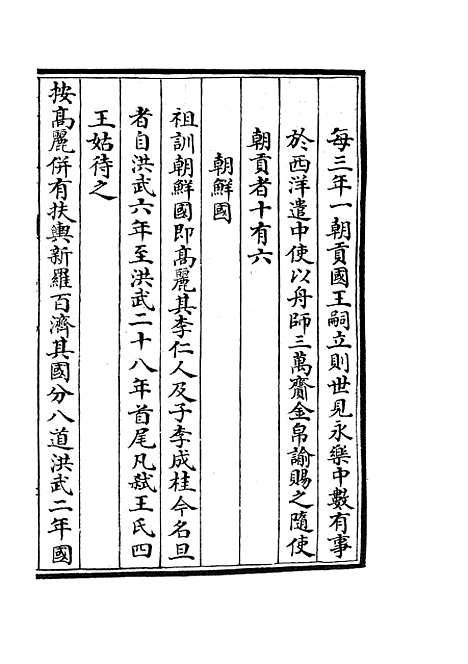 每三年一朝貢國王嗣立則世見永樂中數有事
於西洋遣中使以舟師三萬齎金帛諭賜之隨使
朝貢者十有六
朝鮮國
祖訓朝鮮國即高麗其李仁人及子李成桂今名旦
者自洪武六年至洪武二十八年首尾凡弑王氏四
王姑待之
按高麗併有扶輿新羅百濟其國分八道洪武二年國